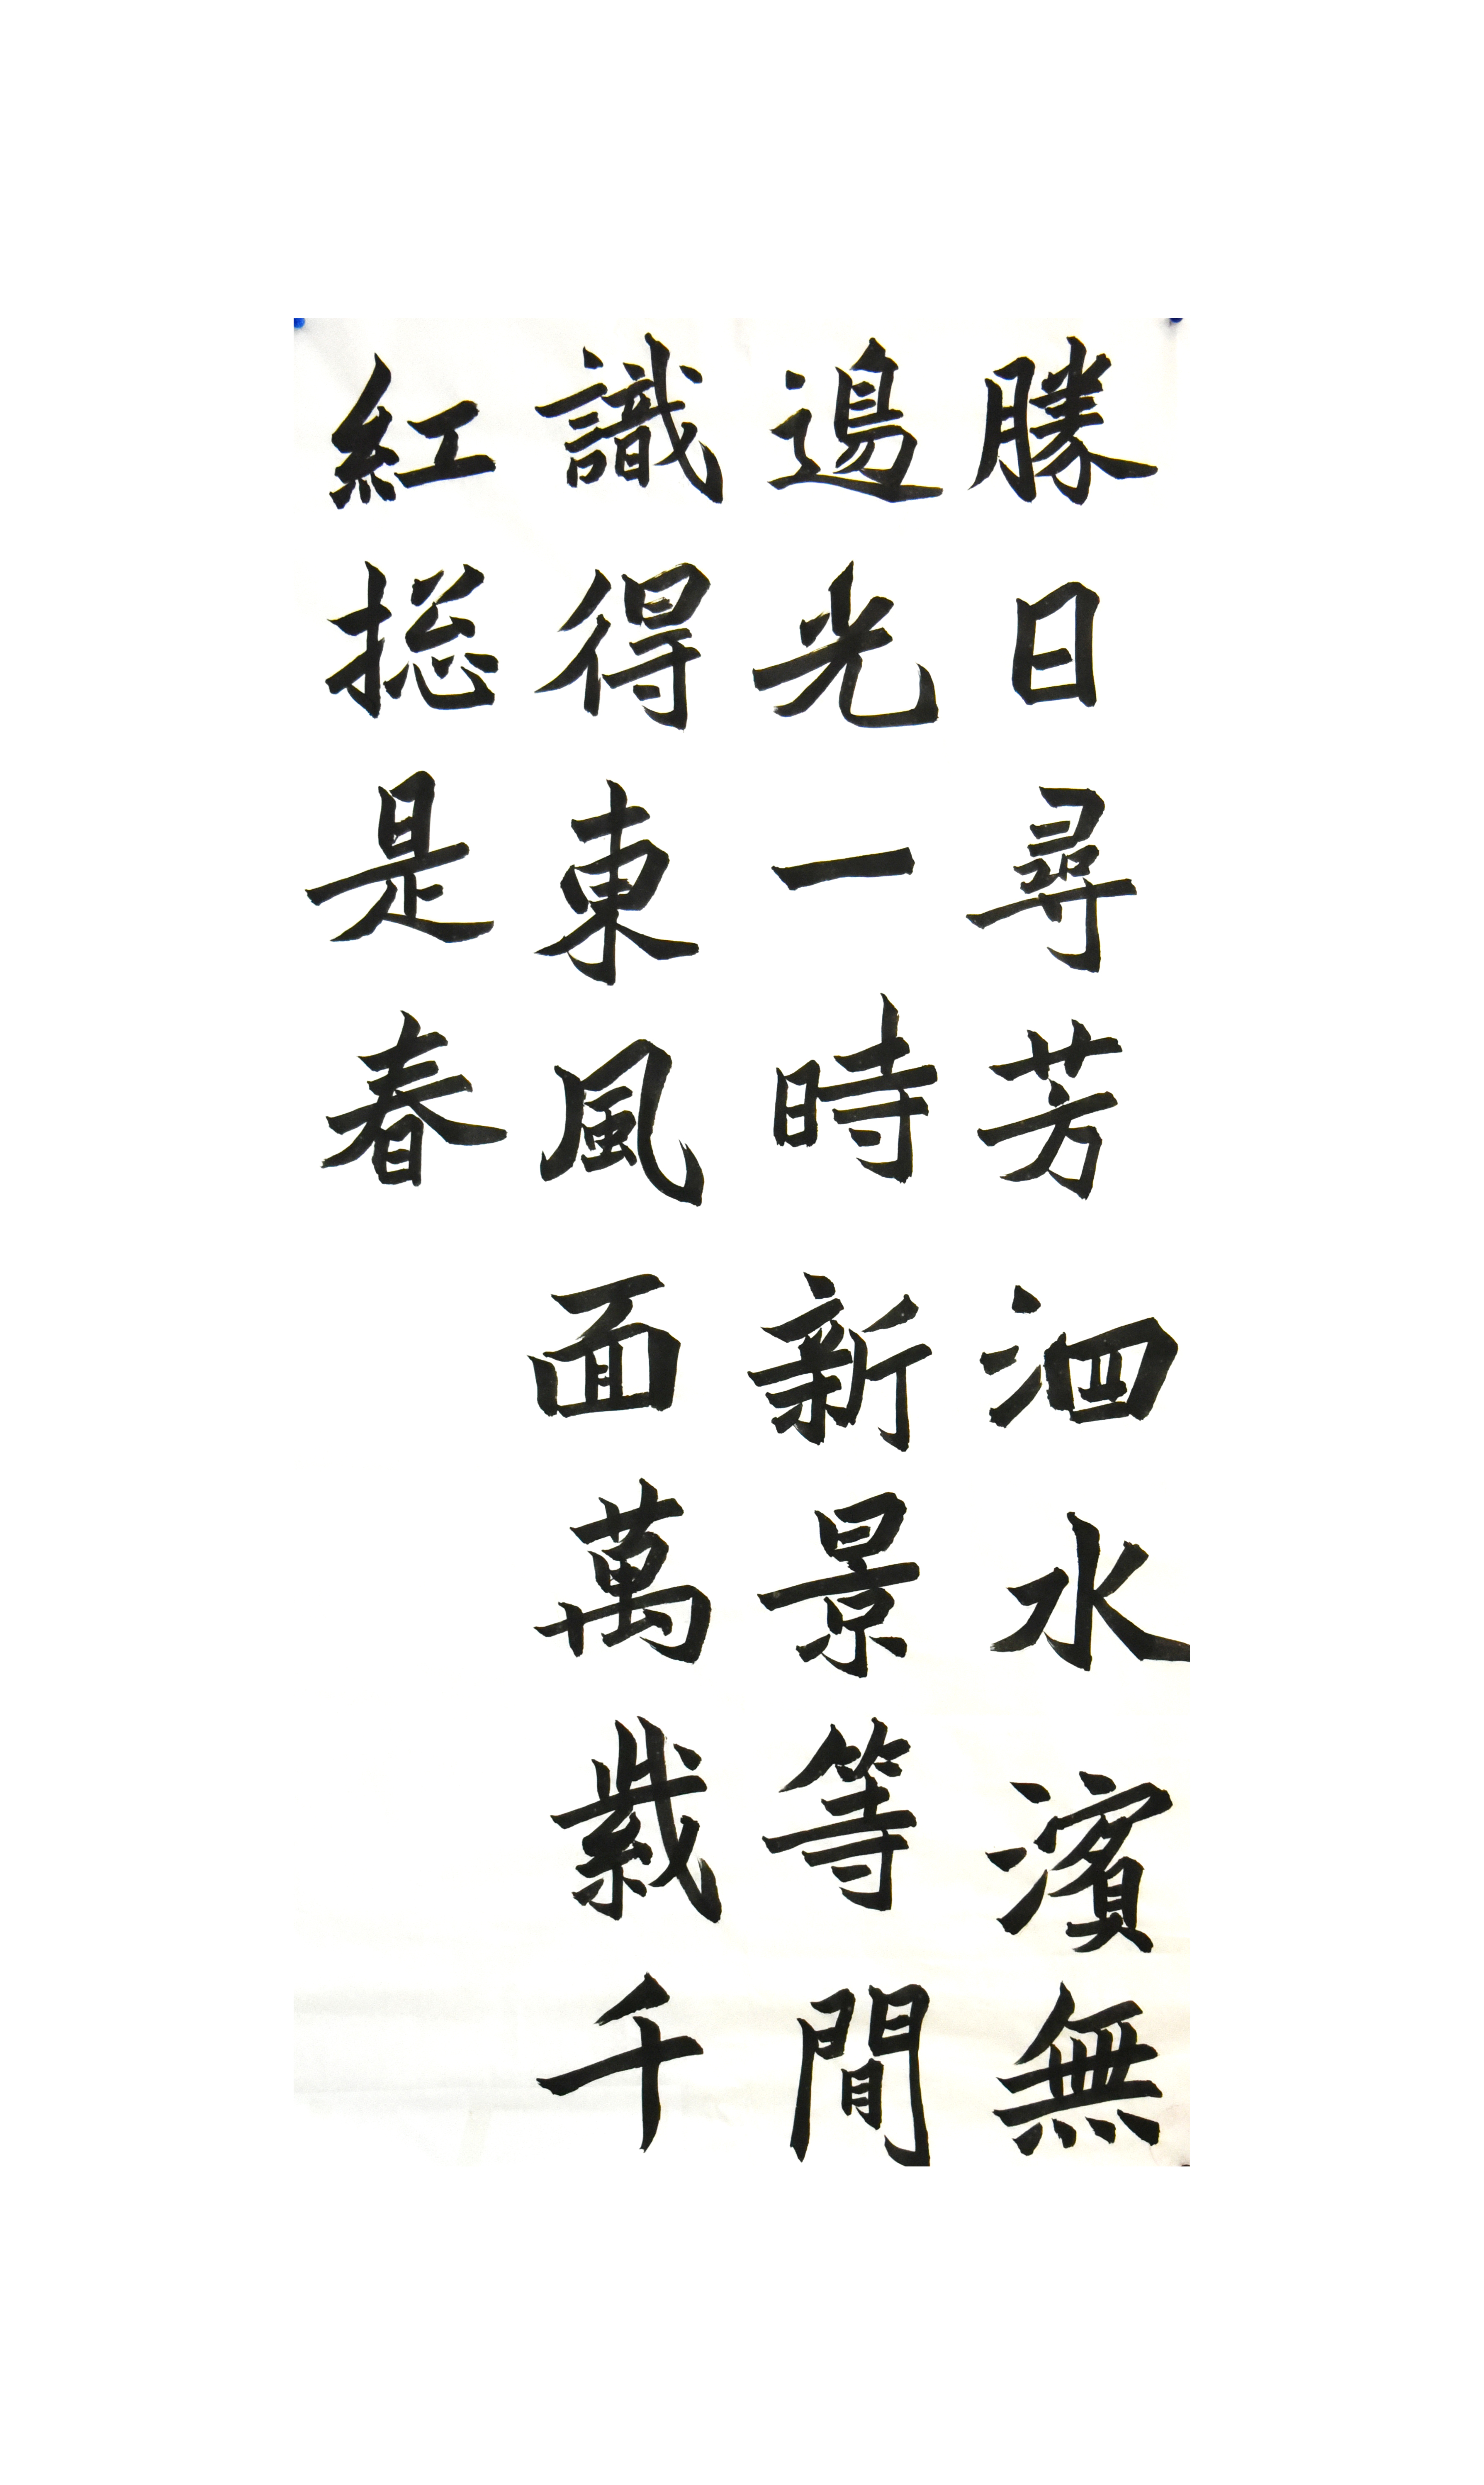 勝日尋芳泗水濱無
邊光一時新景等間
識得東風面萬千
紅捴是春